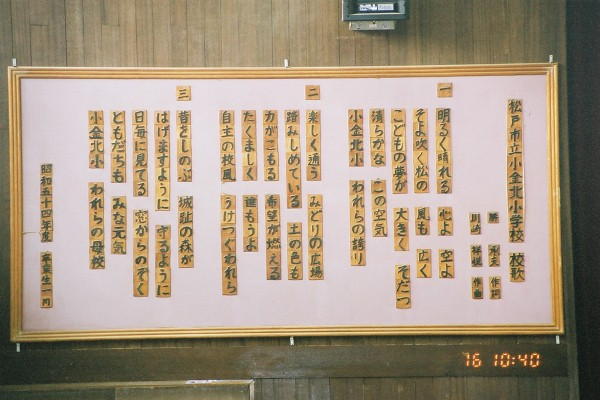 松戸市立小金北小学校 校歌
作詞
川崎 祥悦 作曲
一
明るく晴れる 心よ 空よ
そよ吹く松の 風も 広く
こどもの夢が 大きく そだつ
清らかな この空気
小金北小 われらの誇り
二
楽しく通う みどりの広場
踏みしめている 土の色も
力がこもる 希望が燃える
たくましく 進もうよ
自主の校風 うけつぐわれら
三
昔をしのぶ 城趾の森が
はげますように 守るように
日毎に見てる 窓からのぞく
ともだちも みな元気
小金北小 われらの母校
昭和五十四年度 卒業生一同
76 10:40